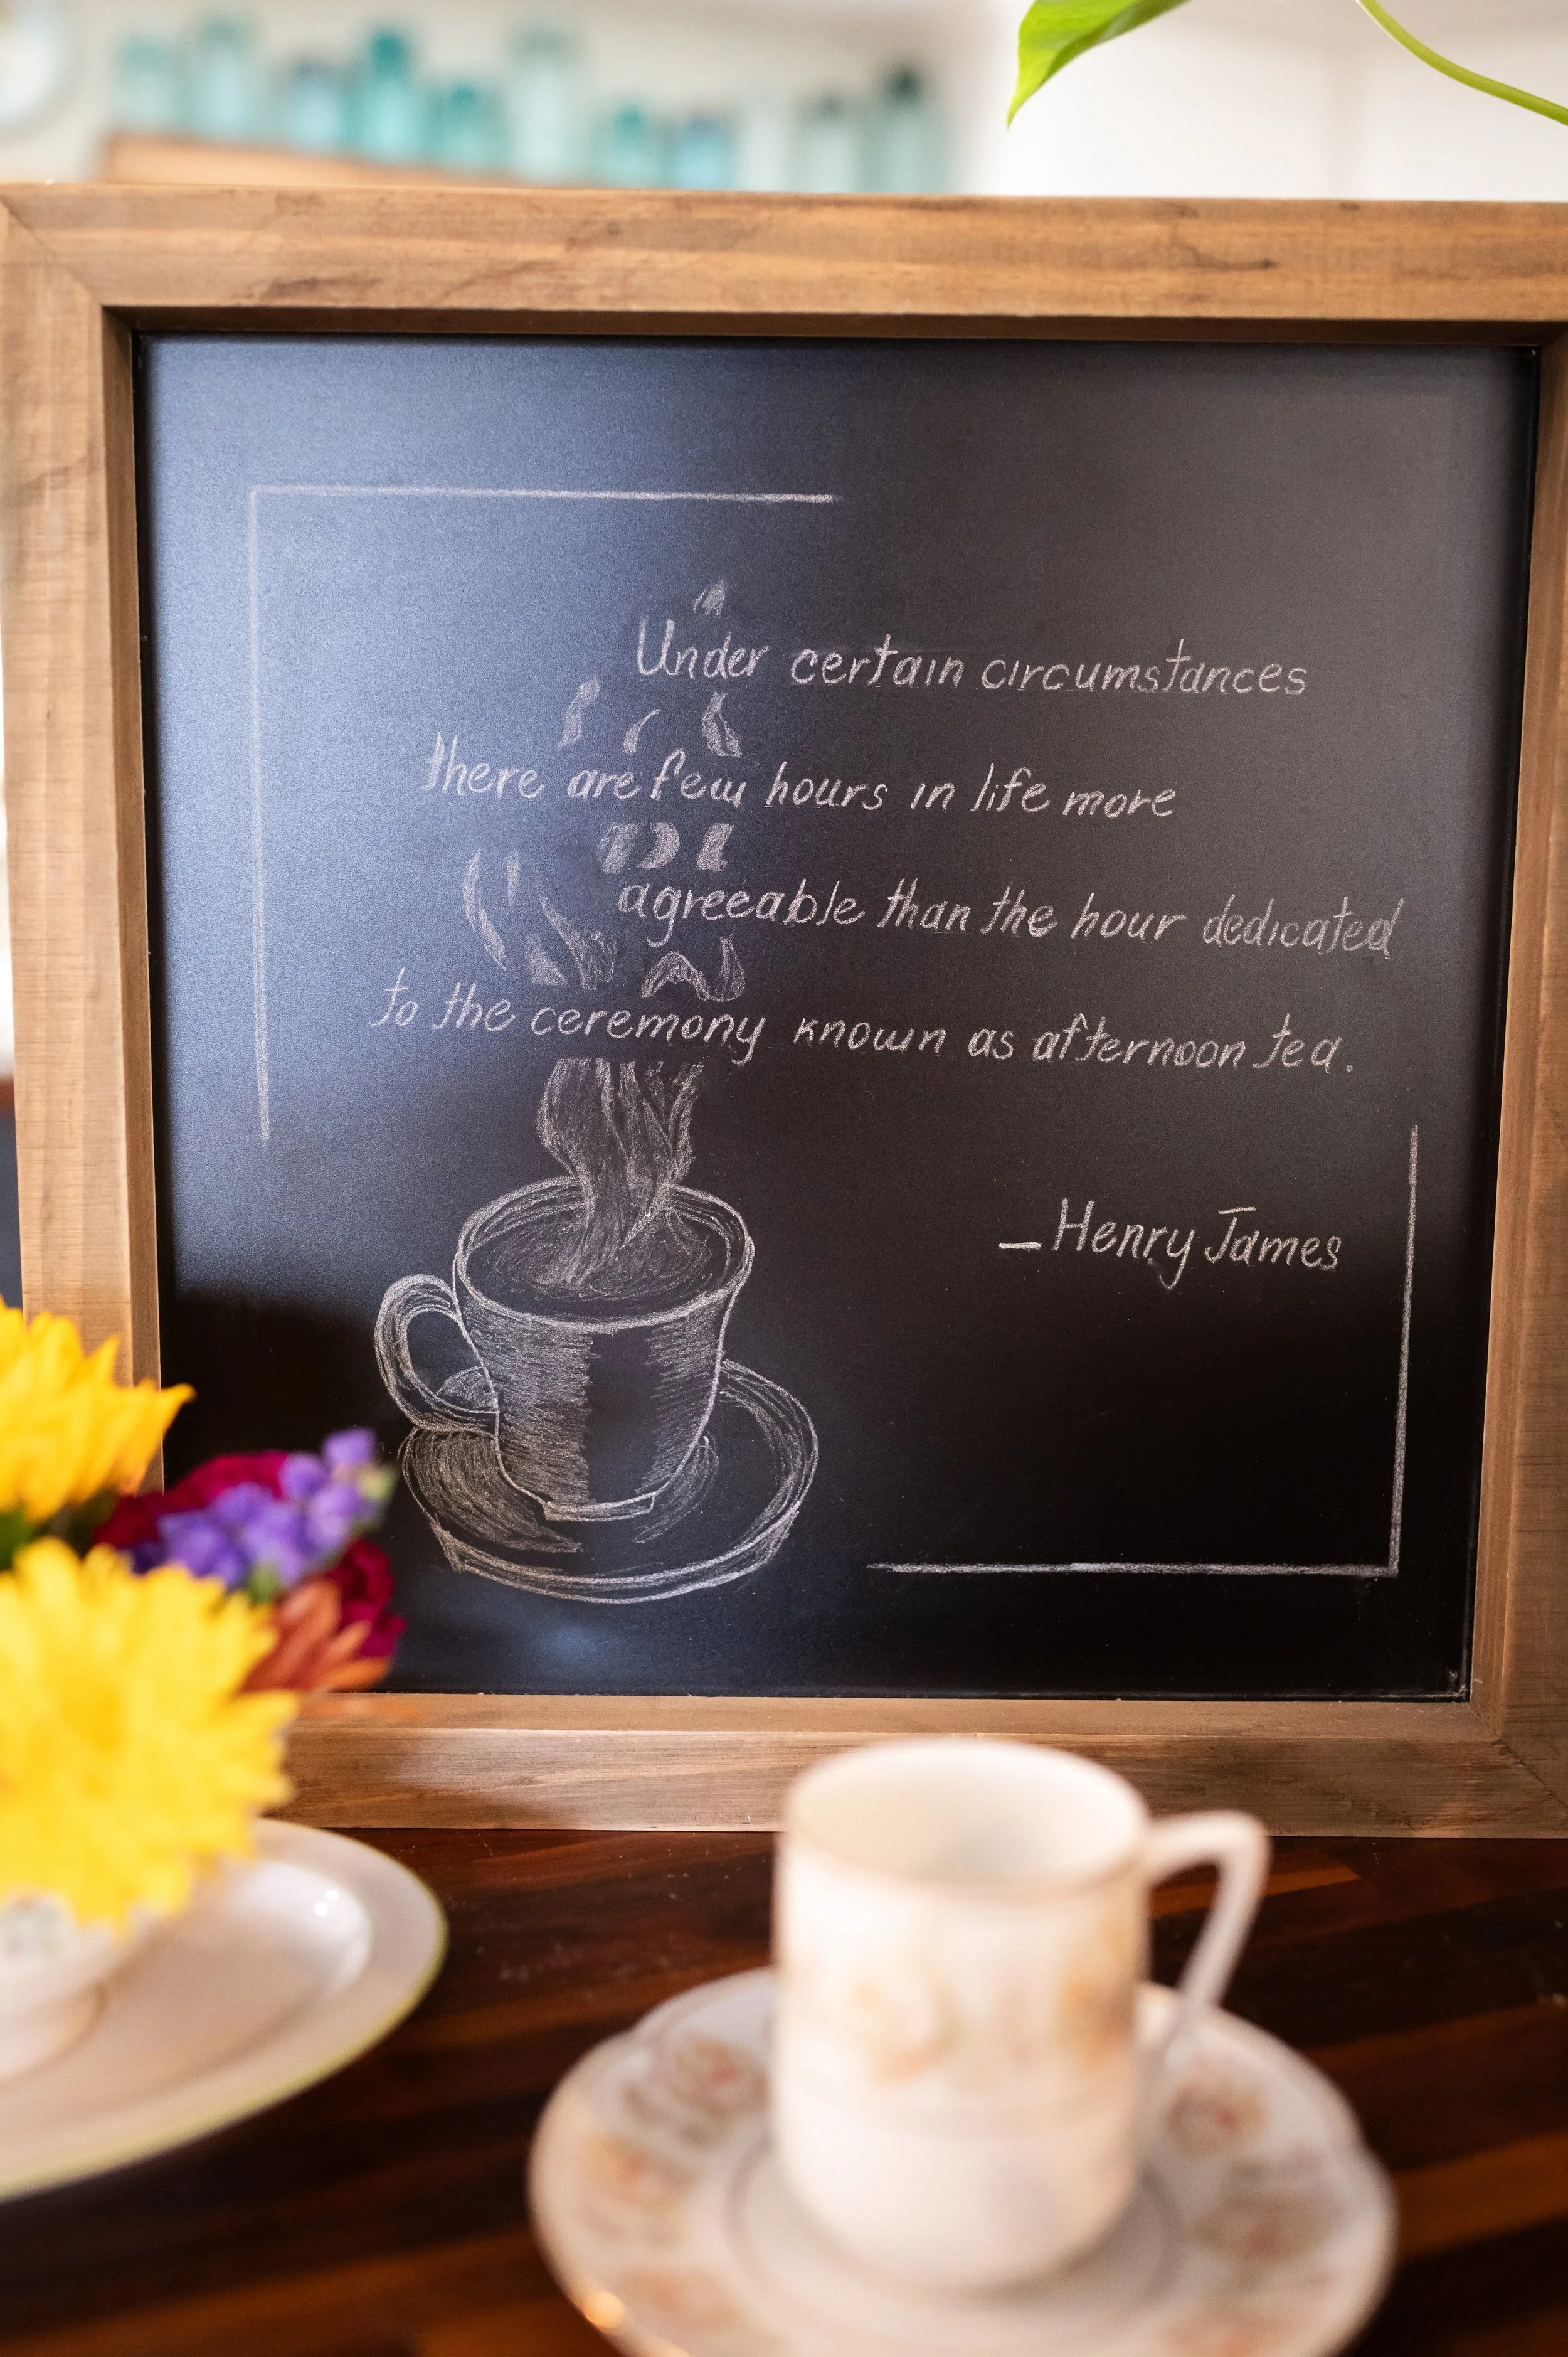 Under certain circumstances
there are few hours in life more
agreeable than the hour dedicated
to the ceremony known as afternoon tea.
_Henry James